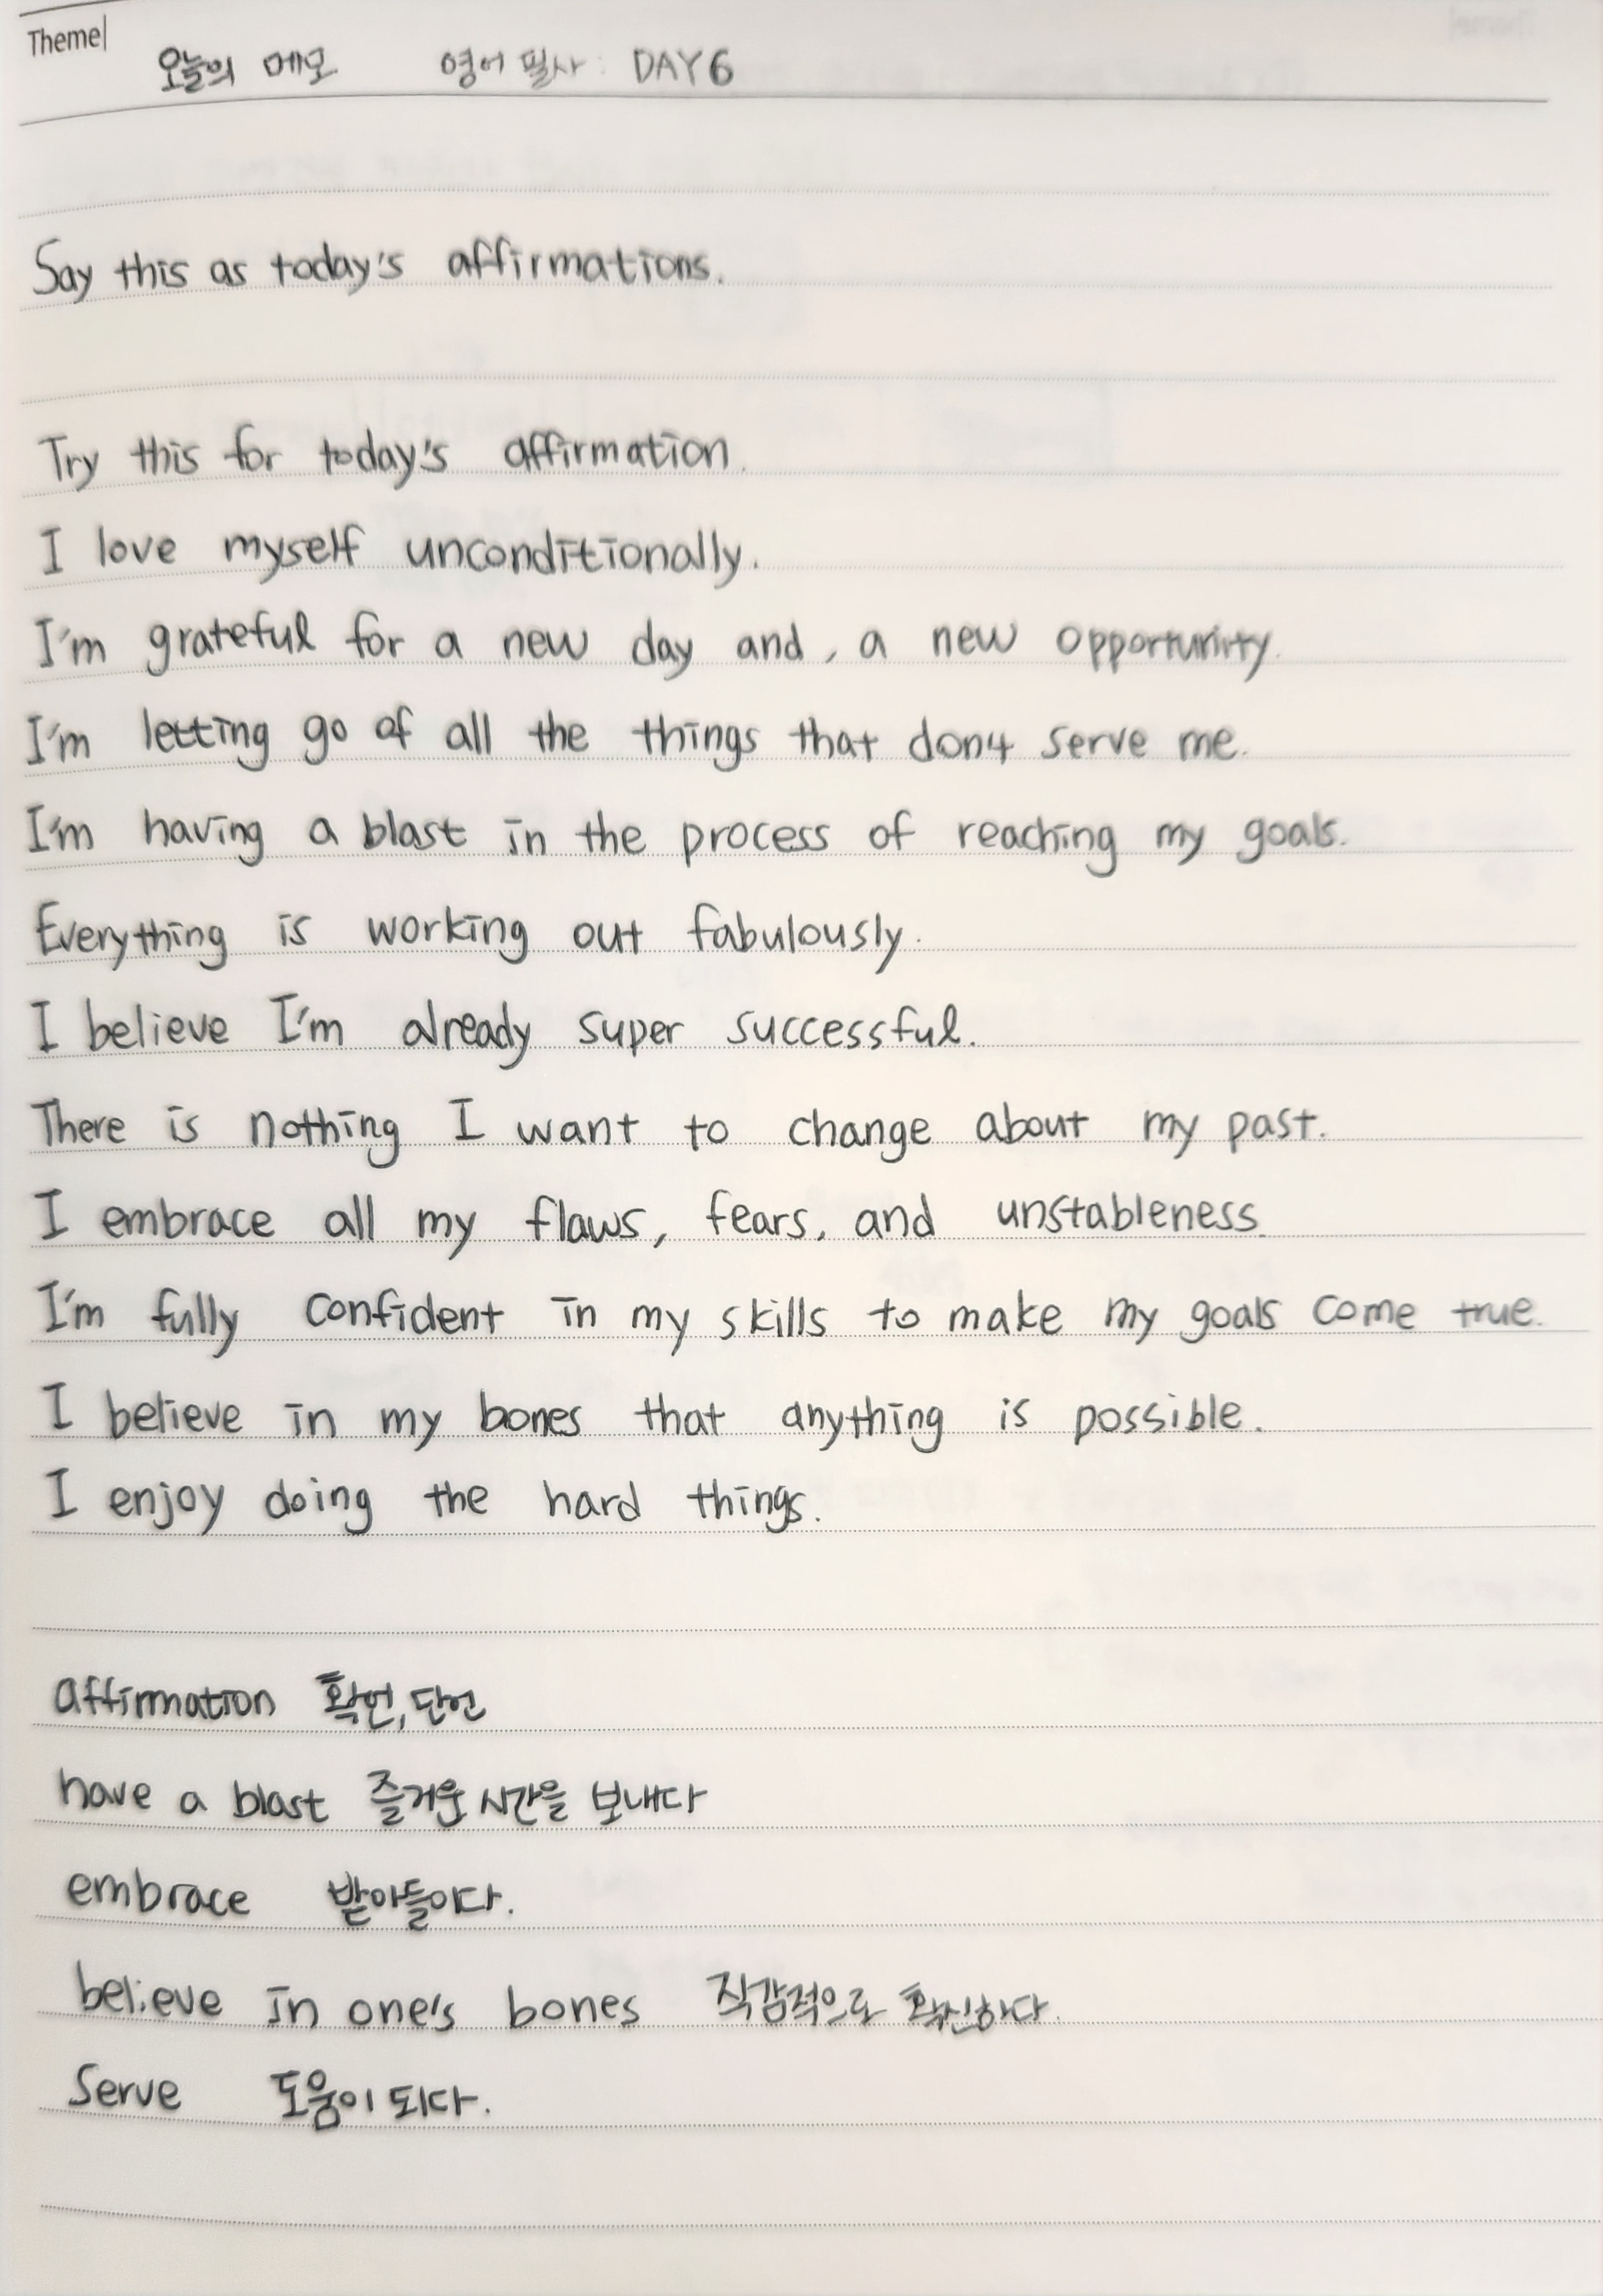 Theme|
오늘의 메모 영어 필사 : DAY 6
Say this as today's affirmations.
Try this for today's affirmation.
I love myself unconditionally.
I'm grateful for a new day and, a new opportunity.
I'm letting go of all the things that don't serve me.
I'm having a blast in the process of reaching my goals.
Everything is working out fabulously.
I believe I'm already super successful.
There is nothing I want to change about my past.
I embrace all my flaws, fears, and unstableness.
I'm fully confident in my skills to make my goals come true.
I believe in my bones that anything is possible.
I enjoy doing the hard things.
affirmation 확언, 단언
have a blast 즐거운 시간을 보내다
embrace 받아들이다.
believe in one's bones 직감적으로 확신하다.
Serve 도움이 되다.